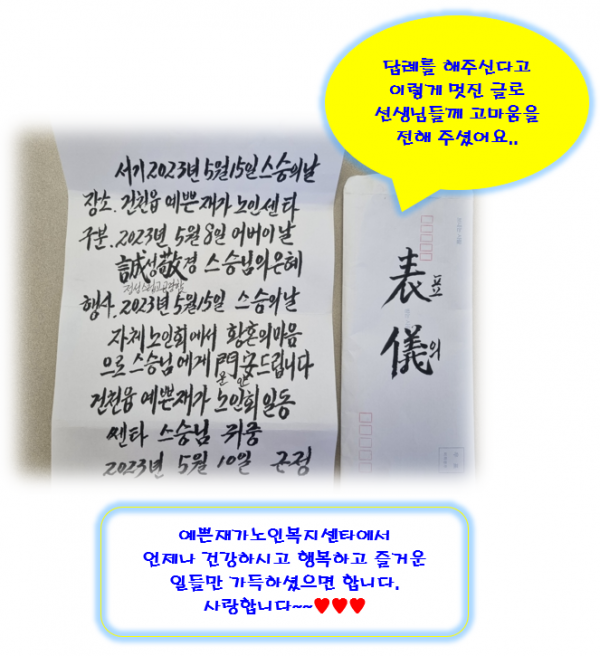 답례를 해주신다고
이렇게 멋진 글로
선생님들께 고마움을
전해 주셨어요..
서기2023년 5월15일 스승의날
장소. 건천읍 예쁜재가 노인센타
구분. 2023년 5월8일 어버이날
誠성敬경 스승님의은혜
행사. 2023년 5월15일 스승의날
자체노인회에서 황혼의마음
으로 스승님에게 門문安안드립니다
건천읍 예쁜재가 노인회일동
쎈타 스승님 귀중
2023년 5월 10일 근정
表표
儀의
예쁜재가노인복지센타에서
언제나 건강하시고 행복하고 즐거운
일들만 가득하셨으면 합니다.
사랑합니다~~♥♥♥